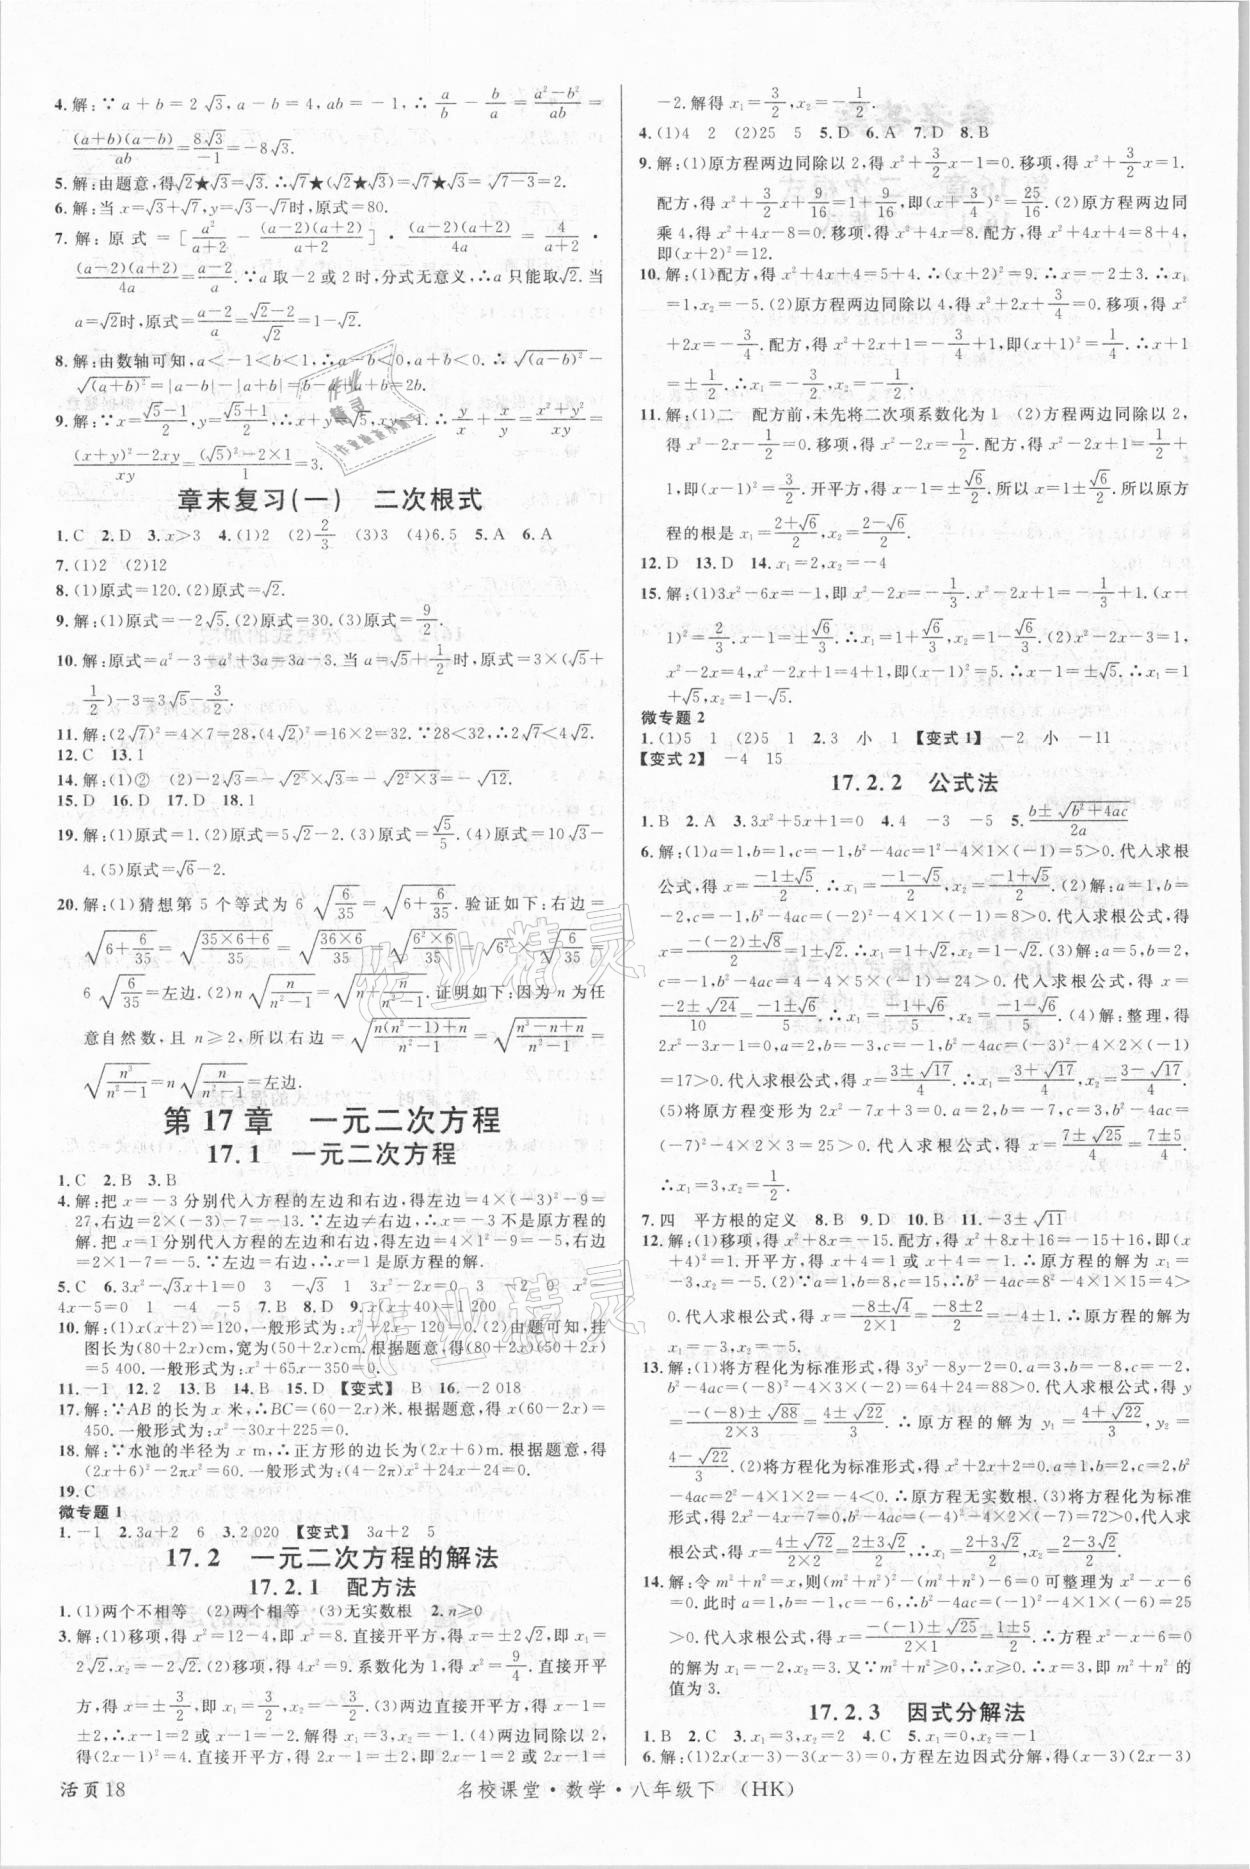 4.解:∵a+b=2√3,a-b=4,ab=-1,∴a/b-b/a=(a²-b²)/ab=
(a+b)(a-b)/ab=8√3/-1=-8√3.
5.解:由题意,得√2★√3=√3.∴√7★(√2★√3)=√7★√3=√(7-3)=2.
6.解:当x=√3+√7,y=√3-√7时,原式=80.
7.解:原式=[a²/(a+2)-(a-2)(a+2)/(a+2)]·(a-2)(a+2)/4a=4/(a+2)·
(a-2)(a+2)/4a=(a-2)/a.∵a取-2或2时,分式无意义,∴a只能取√2.当
a=√2时,原式=(a-2)/a=(√2-2)/√2=1-√2.
8.解:由数轴可知,a<-1<b<1,∴a-b<0,a+b<0.∴√(a-b)²-
√(a+b)²=|a-b|-|a+b|=b-a+a+b=2b.
9.解:∵x=(√5-1)/2,y=(√5+1)/2,∴x+y=√5,xy=1.∴y/x+x/y=(x²+y²)/xy=
((x+y)²-2xy)/xy=((√5)²-2×1)/1=3.
章末复习(一) 二次根式
1.C 2.D 3.x>3 4.(1)2 (2)2/3 (3)3 (4)6.5 5.A 6.A
7.(1)2 (2)12
8.(1)原式=120.(2)原式=√2.
9.解:(1)原式=-2√5.(2)原式=30.(3)原式=9/2.
10.解:原式=a²-3-a²+3a=3a-3.当a=√5+1/2时,原式=3×(√5+
1/2)-3=3√5-3/2.
11.解:(2√7)²=4×7=28,(4√2)²=16×2=32.∵28<32,∴2√7<4√2.
12.C 13.1
14.解:(1)② (2)-2√3=-√2²×√3=-√(2²×3)=-√12.
15.D 16.D 17.D 18.1
19.解:(1)原式=1.(2)原式=5√2-2.(3)原式=√5/5.(4)原式=10√3-
4.(5)原式=√6-2.
20.解:(1)猜想第5个等式为6√(6/35)=√(6+6/35).验证如下:右边=
√(6+6/35)=√((35×6+6)/35)=√(36×6/35)=√(6²×6/35)=√6²×√(6/35)=
6√(6/35)=左边.(2)n√(n/(n²-1))=√(n+n/(n²-1)).证明如下:因为n为任
意自然数,且n≥2,所以右边=√((n(n²-1)+n)/(n²-1))=√((n³-n+n)/(n²-1))=
√(n³/(n²-1))=n√(n/(n²-1))=左边.
第17章 一元二次方程
17.1 一元二次方程
1.C 2.B 3.B
4.解:把x=-3分别代入方程的左边和右边,得左边=4×(-3)²-9=
27,右边=2×(-3)-7=-13.∵左边≠右边,∴x=-3不是原方程的
解.把x=1分别代入方程的左边和右边,得左边=4×1²-9=-5,右边=
2×1-7=-5.∵左边=右边,∴x=1是原方程的解.
5.C 6.3x²-√3x+1=0 3 -√3 1 3x²-2x=0 3 -2 0 x²+
4x-5=0 1 4 -5 7.B 8.D 9.x(x+40)=1 200
10.解:(1)x(x+2)=120,一般形式为:x²+2x-120=0.(2)由题可知,挂
图长为(80+2x)cm,宽为(50+2x)cm.根据题意,得(80+2x)(50+2x)
=5 400.一般形式为:x²+65x-350=0.
11.-1 12.2 13.B 14.B 15.D 【变式】 B 16.-2 018
17.解:∵AB的长为x米,∴BC=(60-2x)米.根据题意,得x(60-2x)=
450.一般形式为:x²-30x+225=0.
18.解:∵水池的半径为x m,∴正方形的边长为(2x+6)m.根据题意,得
(2x+6)²-2πx²=60.一般形式为:(4-2π)x²+24x-24=0.
19.C
微专题1
1.-1 2.3a+2 6 3.2 020 【变式】 3a+2 5
17.2 一元二次方程的解法
17.2.1 配方法
1.(1)两个不相等 (2)两个相等 (3)无实数根 2.n≥0
3.解:(1)移项,得x²=12-4,即x²=8.直接开平方,得x=±2√2,即x₁=
2√2,x₂=-2√2.(2)移项,得4x²=9.系数化为1,得x²=9/4.直接开平
方,得x=±3/2,即x₁=3/2,x₂=-3/2.(3)两边直接开平方,得x-1=
±2,∴x-1=2或x-1=-2.解得x₁=3,x₂=-1.(4)两边同除以2,得
(2x-1)²=4.直接开平方,得2x-1=±2,即2x-1=2或2x-1=
-2.解得x₁=3/2,x₂=-1/2.
4.(1)4 2 (2)25 5 5.D 6.A 7.D 8.B
9.解:(1)原方程两边同除以2,得x²+3/2x-1=0.移项,得x²+3/2x=1.
配方,得x²+3/2x+9/16=1+9/16,即(x+3/4)²=25/16.(2)原方程两边同
乘4,得x²+4x-8=0.移项,得x²+4x=8.配方,得x²+4x+4=8+4,
即(x+2)²=12.
10.解:(1)配方,得x²+4x+4=5+4.∴(x+2)²=9.∴x=-2±3.∴x₁
=1,x₂=-5.(2)原方程两边同除以4,得x²+2x+3/4=0.移项,得x²
+2x=-3/4.配方,得x²+2x+1=-3/4+1,即(x+1)²=1/4.∴x+1
=±1/2.∴x₁=-1/2,x₂=-3/2.
11.解:(1)二 配方前,未先将二次项系数化为1 (2)方程两边同除以2,
得x²-2x-1/2=0.移项,得x²-2x=1/2.配方,得x²-2x+1=1/2+
1,即(x-1)²=3/2.开平方,得x-1=±√6/2.所以x=1±√6/2.所以原方
程的根是x₁=(2+√6)/2,x₂=(2-√6)/2.
12.D 13.D 14.x₁=2,x₂=-4
15.解:(1)3x²-6x=-1,即x²-2x=-1/3.x²-2x+1=-1/3+1.(x-
1)²=2/3.x-1=±√6/3.∴x₁=1+√6/3,x₂=1-√6/3.(2)x²-2x-3=1,
x²-2x=4,x²-2x+1=4+1,即(x-1)²=5.∴x-1=±√5.∴x₁=1
+√5,x₂=1-√5.
微专题2
1.(1)5 1 (2)5 1 2.3 小 1 【变式1】 -2 小 -11
【变式2】 -4 15
17.2.2 公式法
1.B 2.A 3.3x²+5x+1=0 4.4 -3 -5 5.(b±√(b²+4ac))/2a
6.解:(1)a=1,b=1,c=-1,b²-4ac=1²-4×1×(-1)=5>0.代入求根
公式,得x=(-1±√5)/2.∴x₁=(-1+√5)/2,x₂=(-1-√5)/2.(2)解:a=1,b=
-2,c=-1,b²-4ac=(-2)²-4×1×(-1)=8>0.代入求根公式,得
x=(-(-2)±√8)/2=1±√2.∴x₁=1+√2,x₂=1-√2.(3)解:a=5,b=2,
c=-1,b²-4ac=2²-4×5×(-1)=24>0.代入求根公式,得x=
(-2±√24)/10=(-1±√6)/5.∴x₁=(-1+√6)/5,x₂=(-1-√6)/5.(4)解:整理,得
2x²-3x-1=0.a=2,b=-3,c=-1,b²-4ac=(-3)²-4×2×(-1)
=17>0.代入求根公式,得x=(3±√17)/4.∴x₁=(3+√17)/4,x₂=(3-√17)/4.
(5)将原方程变形为2x²-7x+3=0.a=2,b=-7,c=3,b²-4ac=
(-7)²-4×2×3=25>0.代入求根公式,得x=(7±√25)/4=(7±5)/4.
∴x₁=3,x₂=1/2.
7.四 平方根的定义 8.B 9.D 10.B 11.-3±√11
12.解:(1)移项,得x²+8x=-15.配方,得x²+8x+16=-15+16,即(x+4)²
=1.开平方,得x+4=1或x+4=-1.∴原方程的解为x₁=
-3,x₂=-5.(2)∵a=1,b=8,c=15,∴b²-4ac=8²-4×1×15=4>
0.代入求根公式,得x=(-8±√4)/(2×1)=(-8±2)/2=-4±1.∴原方程的解为
x₁=-3,x₂=-5.
13.解:(1)将方程化为标准形式,得3y²-8y-2=0.a=3,b=-8,c=-2,
b²-4ac=(-8)²-4×3×(-2)=64+24=88>0.代入求根公式,得y
=(-(-8)±√88)/(2×3)=(4±√22)/3.∴原方程的解为y₁=(4+√22)/3,y₂=
(4-√22)/3.(2)将方程化为标准形式,得x²+2x+2=0.a=1,b=2,c=2,b²-
4ac=2²-4×1×2=-4<0.∴原方程无实数根.(3)将方程化为标准
形式,得2x²-4x-7=0.b²-4ac=(-4)²-4×2×(-7)=72>0,代入求
根公式,得x=(4±√72)/(2×2)=(2±3√2)/2.∴x₁=(2+3√2)/2,x₂=(2-3√2)/2.
14.解:令m²+n²=x,则(m²+n²)(m²+n²-1)-6=0可整理为x²-x-6
=0.此时a=1,b=-1,c=-6,b²-4ac=(-1)²-4×1×(-6)=25
>0.代入求根公式,得x=(-(-1)±√25)/(2×1)=(1±5)/2.∴方程x²-x-6=0
的解为x₁=-2,x₂=3.又∵m²+n²≥0,∴x≥0.∴x=3,即m²+n²的
值为3.
17.2.3 因式分解法
1.B 2.C 3.x₁=3,x₂=2 4.C 5.x₁=0,x₂=-1
6.解:(1)2x(x-3)-3(x-3)=0,方程左边因式分解,得(x-3)(2x-3)
活页18
名校课堂·数学·八年级下 (HK)
作业精灵